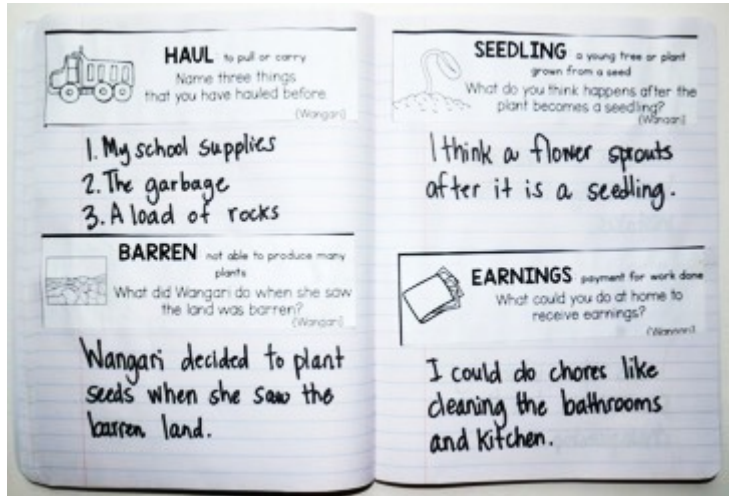 HAUL to pull or carry
Name three things
that you have hauled before.
(Wangari)
1. My school supplies
2. The garbage
3. A load of rocks
BARREN not able to produce many
plants
What did Wangari do when she saw
the land was barren?
(Wangari)
Wangari decided to plant
seeds when she saw the
barren land.
SEEDLING a young tree or plant
grown from a seed
What do you think happens after the
plant becomes a seedling?
(Wangari)
I think a flower sprouts
after it is a seedling.
EARNINGS payment for work done
What could you do at home to
receive earnings?
(Wangari)
I could do chores like
cleaning the bathrooms
and kitchen.